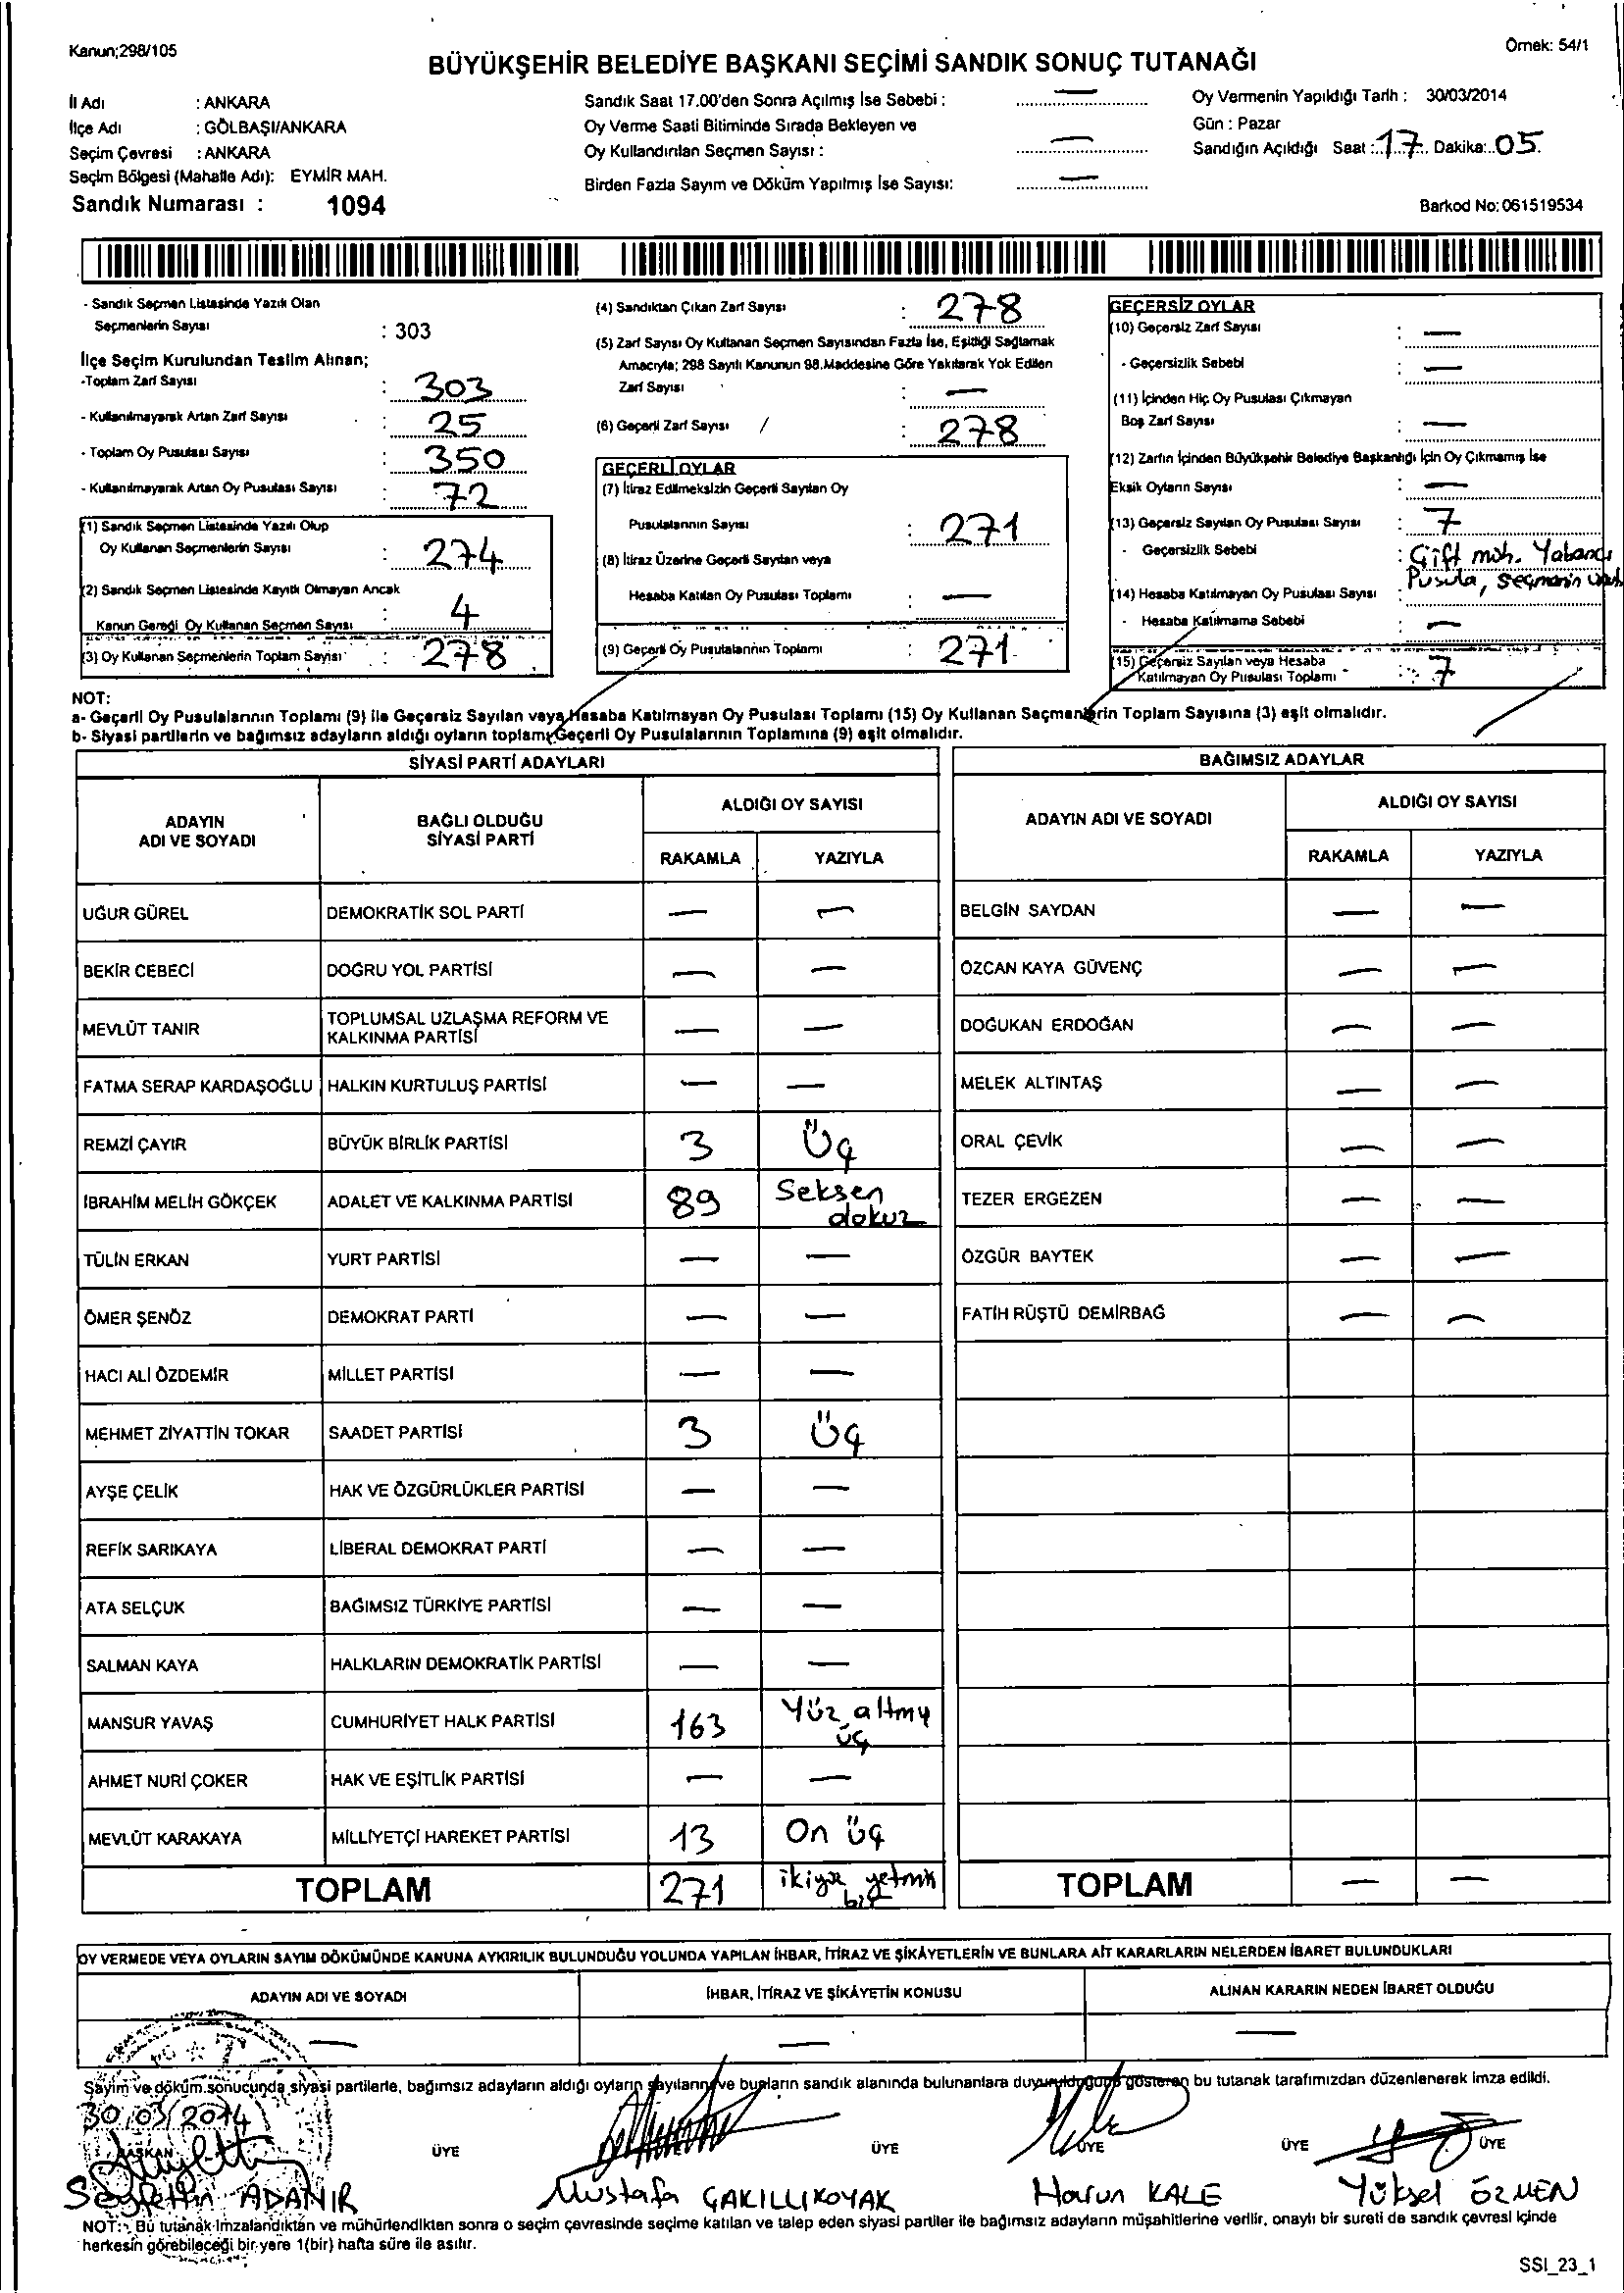 Kanun;298/105
Örnek: 54/1
BÜYÜKŞEHİR BELEDİYE BAŞKANI SEÇİMİ SANDIK SONUÇ TUTANAĞI
İl Adı : ANKARA
İlçe Adı : GÖLBAŞI/ANKARA
Seçim Çevresi : ANKARA
Seçim Bölgesi (Mahalle Adı): EYMİR MAH.
Sandık Numarası : 1094
Sandık Saat 17.00'den Sonra Açılmış İse Sebebi : —
Oy Verme Saati Bitiminde Sırada Bekleyen ve
Oy Kullandırılan Seçmen Sayısı : —
Birden Fazla Sayım ve Döküm Yapılmış İse Sayısı: —
Oy Vermenin Yapıldığı Tarih : 30/03/2014
Gün : Pazar
Sandığın Açıldığı Saat : 17 Dakika: 05
Barkod No: 061519534
- Sandık Seçmen Listesinde Yazılı Olan
Seçmenlerin Sayısı : 303
İlçe Seçim Kurulundan Teslim Alınan;
-Toplam Zarf Sayısı : 303
- Kullanılmayarak Artan Zarf Sayısı : 25
- Toplam Oy Pusulası Sayısı : 350
- Kullanılmayarak Artan Oy Pusulası Sayısı : 72
(1) Sandık Seçmen Listesinde Yazılı Olup
Oy Kullanan Seçmenlerin Sayısı : 274
(2) Sandık Seçmen Listesinde Kayıtlı Olmayan Ancak
Kanun Gereği Oy Kullanan Seçmen Sayısı : 4
(3) Oy Kullanan Seçmenlerin Toplam Sayısı : 278
(4) Sandıktan Çıkan Zarf Sayısı : 278
(5) Zarf Sayısı Oy Kullanan Seçmen Sayısından Fazla İse, Eşitliği Sağlamak
Amacıyla; 298 Sayılı Kanunun 98.Maddesine Göre Yakılarak Yok Edilen
Zarf Sayısı : —
(6) Geçerli Zarf Sayısı / : 278
GEÇERLİ OYLAR
(7) İtiraz Edilmeksizin Geçerli Sayılan Oy
Pusulalarının Sayısı : 271
(8) İtiraz Üzerine Geçerli Sayılan veya
Hesaba Katılan Oy Pusulası Toplamı : —
(9) Geçerli Oy Pusulalarının Toplamı : 271
GEÇERSİZ OYLAR
(10) Geçersiz Zarf Sayısı : —
- Geçersizlik Sebebi : —
(11) İçinden Hiç Oy Pusulası Çıkmayan
Boş Zarf Sayısı : —
(12) Zarfın İçinden Büyükşehir Belediye Başkanlığı İçin Oy Çıkmamış İse
Eksik Oyların Sayısı : —
(13) Geçersiz Sayılan Oy Pusulası Sayısı : 7
- Geçersizlik Sebebi : Çift müh. Yabancı
Pusula, seçmenin
(14) Hesaba Katılmayan Oy Pusulası Sayısı :
- Hesaba Katılmama Sebebi : —
(15) Geçersiz Sayılan veya Hesaba
Katılmayan Oy Pusulası Toplamı : 7
NOT:
a- Geçerli Oy Pusulalarının Toplamı (9) ile Geçersiz Sayılan veya Hesaba Katılmayan Oy Pusulası Toplamı (15) Oy Kullanan Seçmenlerin Toplam Sayısına (3) eşit olmalıdır.
b- Siyasi partilerin ve bağımsız adayların aldığı oyların toplamı Geçerli Oy Pusulalarının Toplamına (9) eşit olmalıdır.
SİYASİ PARTİ ADAYLARI
ADAYIN ADI VE SOYADI BAĞLI OLDUĞU SİYASİ PARTİ ALDIĞI OY SAYISI
RAKAMLA YAZIYLA
UĞUR GÜREL DEMOKRATİK SOL PARTİ — —
BEKİR CEBECİ DOĞRU YOL PARTİSİ — —
MEVLÜT TANIR TOPLUMSAL UZLAŞMA REFORM VE KALKINMA PARTİSİ — —
FATMA SERAP KARDAŞOĞLU HALKIN KURTULUŞ PARTİSİ — —
REMZİ ÇAYIR BÜYÜK BİRLİK PARTİSİ 3 Üç
İBRAHİM MELİH GÖKÇEK ADALET VE KALKINMA PARTİSİ 89 Seksen dokuz
TÜLİN ERKAN YURT PARTİSİ — —
ÖMER ŞENÖZ DEMOKRAT PARTİ — —
HACI ALİ ÖZDEMİR MİLLET PARTİSİ — —
MEHMET ZİYATTİN TOKAR SAADET PARTİSİ 3 Üç
AYŞE ÇELİK HAK VE ÖZGÜRLÜKLER PARTİSİ — —
REFİK SARIKAYA LİBERAL DEMOKRAT PARTİ — —
ATA SELÇUK BAĞIMSIZ TÜRKİYE PARTİSİ — —
SALMAN KAYA HALKLARIN DEMOKRATİK PARTİSİ — —
MANSUR YAVAŞ CUMHURİYET HALK PARTİSİ 163 Yüz altmış üç
AHMET NURİ ÇOKER HAK VE EŞİTLİK PARTİSİ — —
MEVLÜT KARAKAYA MİLLİYETÇİ HAREKET PARTİSİ 13 On üç
TOPLAM 271 ikiyüz yetmiş bir
BAĞIMSIZ ADAYLAR
ADAYIN ADI VE SOYADI ALDIĞI OY SAYISI
RAKAMLA YAZIYLA
BELGİN SAYDAN — —
ÖZCAN KAYA GÜVENÇ — —
DOĞUKAN ERDOĞAN — —
MELEK ALTINTAŞ — —
ORAL ÇEVİK — —
TEZER ERGEZEN — —
ÖZGÜR BAYTEK — —
FATİH RÜŞTÜ DEMİRBAĞ — —
TOPLAM — —
OY VERMEDE VEYA OYLARIN SAYIM DÖKÜMÜNDE KANUNA AYKIRILIK BULUNDUĞU YOLUNDA YAPILAN İHBAR, İTİRAZ VE ŞİKÂYETLERİN VE BUNLARA AİT KARARLARIN NELERDEN İBARET BULUNDUKLARI
ADAYIN ADI VE SOYADI İHBAR, İTİRAZ VE ŞİKÂYETİN KONUSU ALINAN KARARIN NEDEN İBARET OLDUĞU
— — —
Sayım ve döküm sonucunda siyasi partilerle, bağımsız adayların aldığı oyların sayılarını ve bunların sandık alanında bulunanlara duyurulduğunu gösteren bu tutanak tarafımızdan düzenlenerek imza edildi.
30/03/2014
BAŞKAN ÜYE ÜYE ÜYE ÜYE ÜYE
Seyfettin ADANIR Mustafa ÇAKILLIKOYAK Harun KALE Yüksel ÖZMEN
NOT: Bu tutanak imzalandıktan ve mühürlendikten sonra o seçim çevresinde seçime katılan ve talep eden siyasi partiler ile bağımsız adayların müşahitlerine verilir, onaylı bir sureti de sandık çevresi içinde
herkesin görebileceği bir yere 1(bir) hafta süre ile asılır.
SSI_23_1